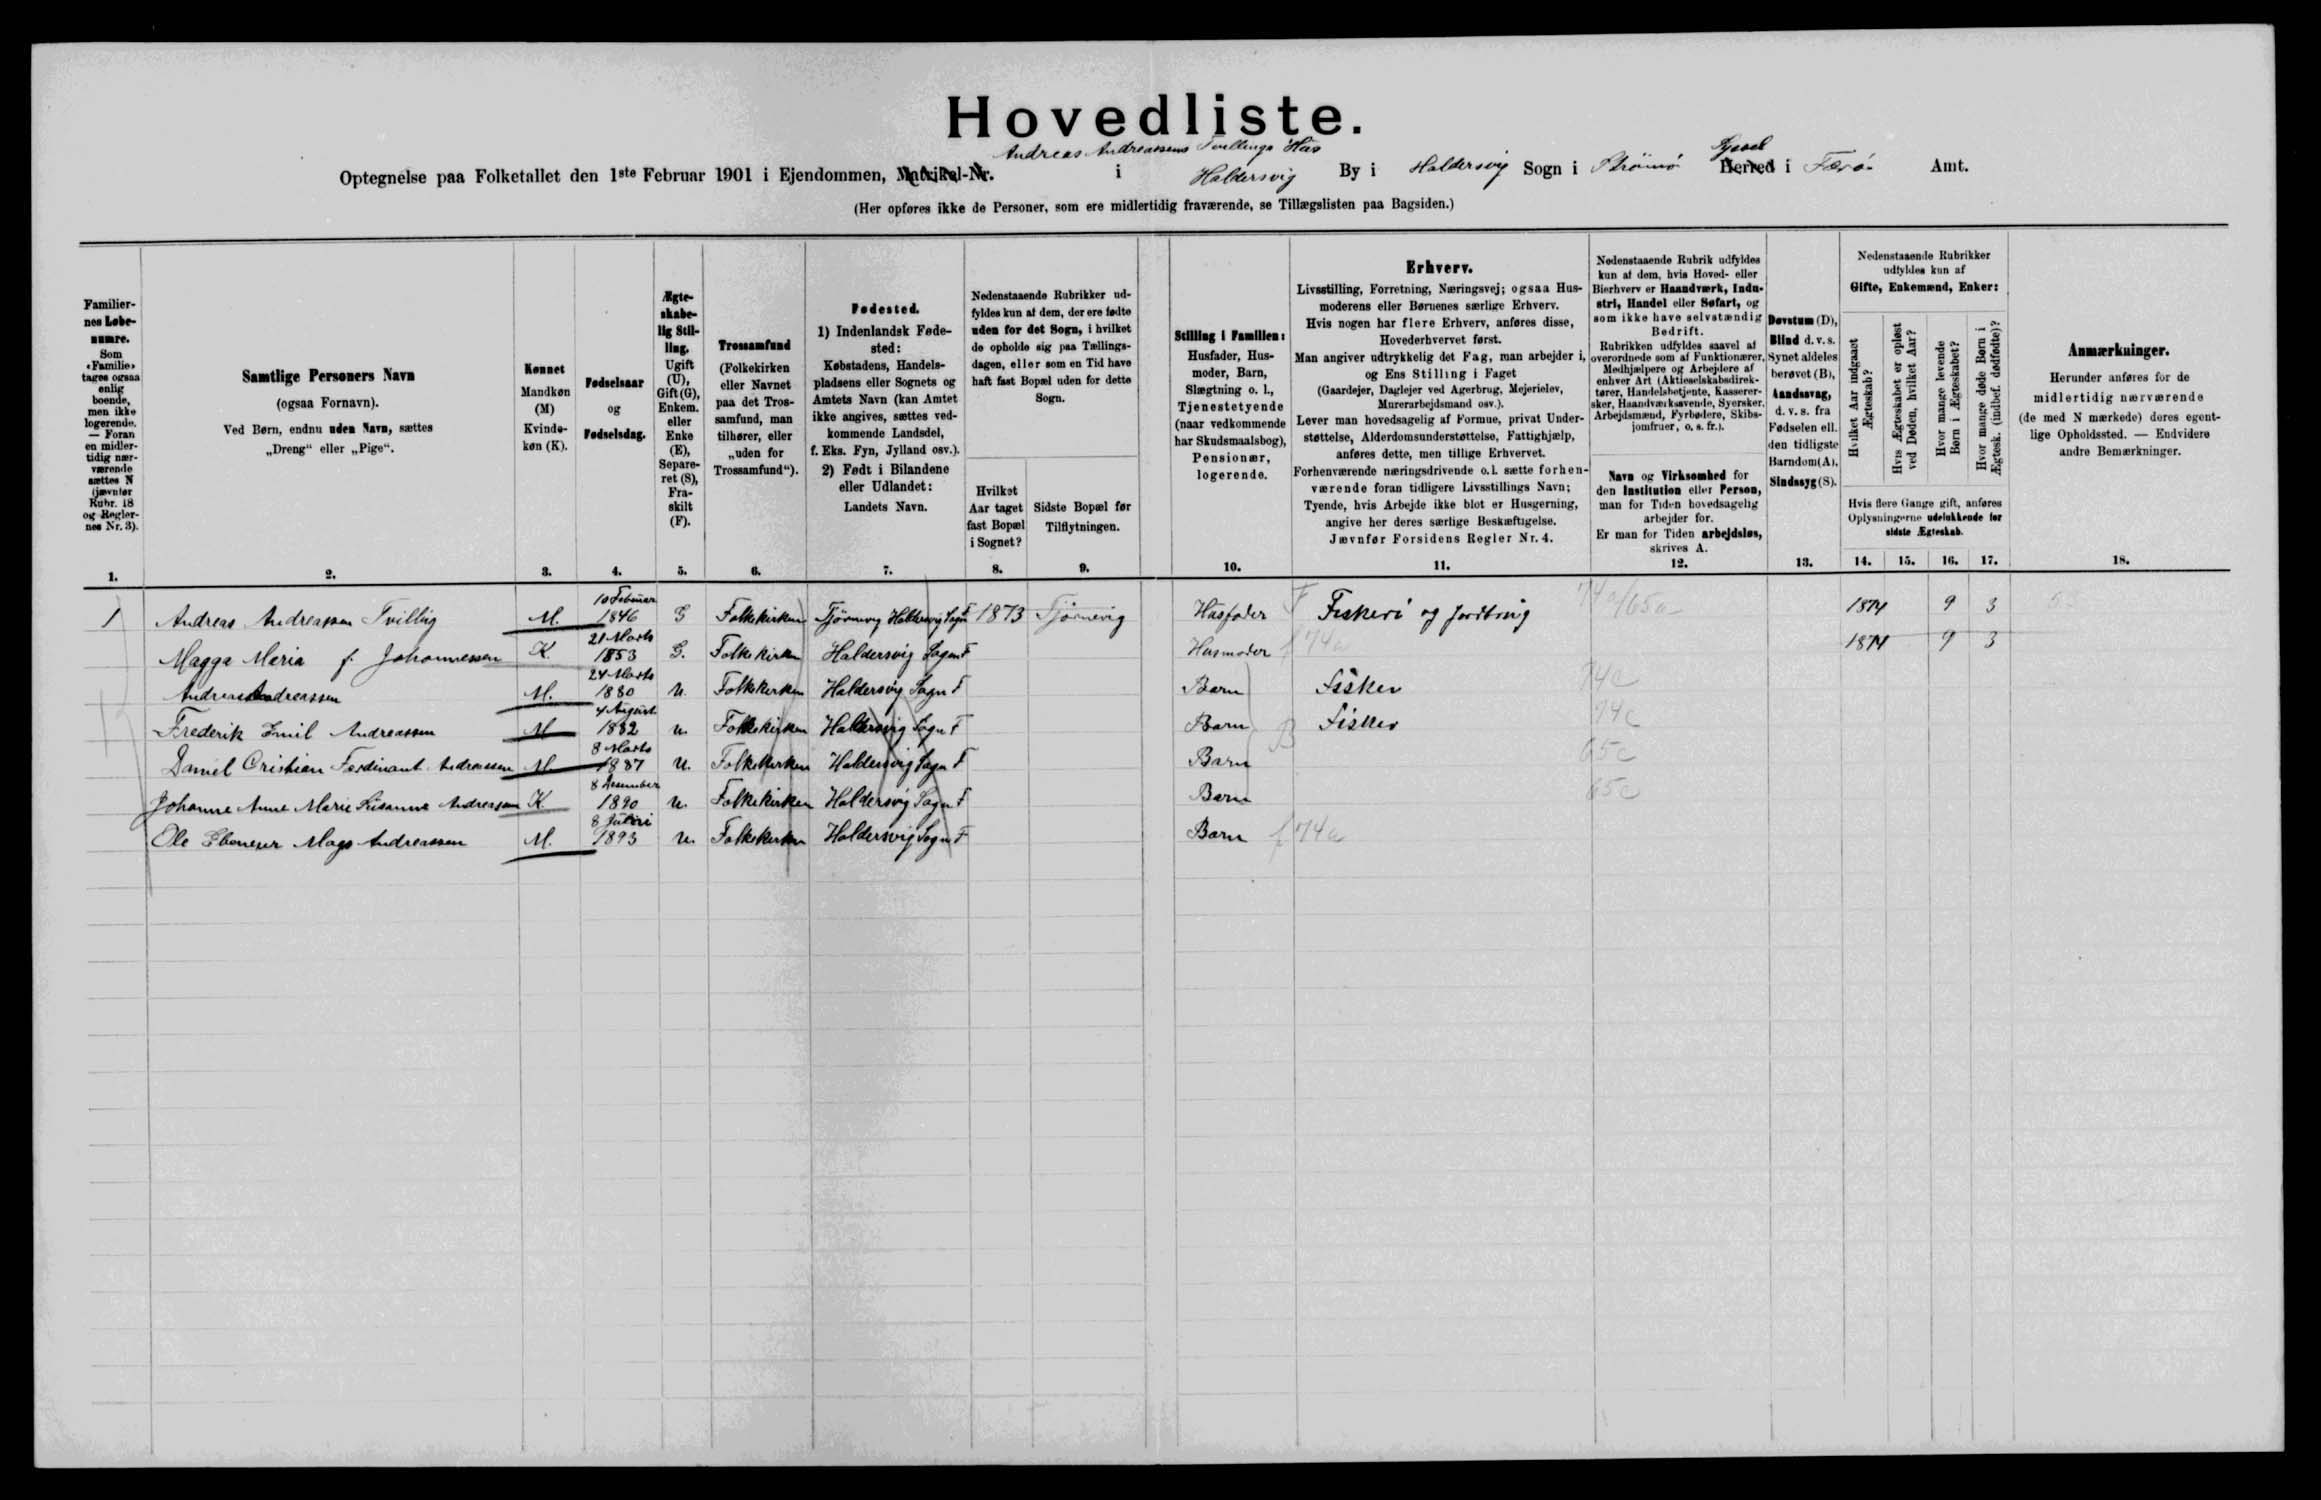 Hovedliste.
Andreas Andreassens Tvillings Hus
Optegnelse paa Folketallet den 1ste Februar 1901 i Ejendommen, Matrikel-Nr. i Haldersvig By i Haldersvig Sogn i Strömö Syssel Herred i Færö Amt.
(Her opføres ikke de Personer, som ere midlertidig fraværende, se Tillægslisten paa Bagsiden.)
Familiernes Løbenumre.
Som «Familie» tages ogsaa enlig boende, men ikke logerende. — Foran en midlertidig nærværende sættes N (jævnfør Rubr. 18 og Reglernes Nr. 3).
1.
Samtlige Personers Navn
(ogsaa Fornavn).
Ved Børn, endnu uden Navn, sættes
„Dreng“ eller „Pige“.
2.
Kønnet
Mandkøn (M)
Kvindekøn (K).
3.
Fødselsaar
og
Fødselsdag.
4.
Ægteskabelig Stilling.
Ugift (U), Gift (G), Enkem. eller Enke (E), Separeret (S), Fraskilt (F).
5.
Trossamfund
(Folkekirken eller Navnet paa det Trossamfund, man tilhører, eller „uden for Trossamfund“).
6.
Fødested.
1) Indenlandsk Fødested:
Købstadens, Handelspladsens eller Sognets og Amtets Navn (kan Amtet ikke angives, sættes vedkommende Landsdel, f. Eks. Fyn, Jylland osv.).
2) Født i Bilandene eller Udlandet:
Landets Navn.
7.
Nedenstaaende Rubrikker udfyldes kun af dem, der ere fødte uden for det Sogn, i hvilket de opholde sig paa Tællingsdagen, eller som en Tid have haft fast Bopæl uden for dette Sogn.
Hvilket Aar taget fast Bopæl i Sognet?
8.
Sidste Bopæl før Tilflytningen.
9.
Stilling i Familien:
Husfader, Husmoder, Barn, Slægtning o. l., Tjenestetyende (naar vedkommende har Skudsmaalsbog), Pensionær, logerende.
10.
Erhverv.
Livsstilling, Forretning, Næringsvej; ogsaa Husmoderens eller Børnenes særlige Erhverv.
Hvis nogen har flere Erhverv, anføres disse, Hovederhvervet først.
Man angiver udtrykkelig det Fag, man arbejder i, og Ens Stilling i Faget
(Gaardejer, Daglejer ved Agerbrug, Mejerielev, Murerarbejdsmand osv.).
Lever man hovedsagelig af Formue, privat Understøttelse, Alderdomsunderstøttelse, Fattighjælp, anføres dette, men tillige Erhvervet.
Forhenværende næringsdrivende o. l. sætte forhenværende foran tidligere Livsstillings Navn; Tyende, hvis Arbejde ikke blot er Husgerning, angive her deres særlige Beskæftigelse.
Jævnfør Forsidens Regler Nr. 4.
11.
Nedenstaaende Rubrik udfyldes kun af dem, hvis Hoved- eller Bierhverv er Haandværk, Industri, Handel eller Søfart, og som ikke have selvstændig Bedrift.
Rubrikken udfyldes saavel af overordnede som af Funktionærer, Medhjælpere og Arbejdere af enhver Art (Aktieselskabsdirektører, Handelsbetjente, Kasserersker, Haandværkssvende, Syersker, Arbejdsmænd, Fyrbødere, Skibsjomfruer, o. s. fr.).
Navn og Virksomhed for den Institution eller Person, man for Tiden hovedsagelig arbejder for.
Er man for Tiden arbejdsløs, skrives A.
12.
Døvstum (D), Blind d. v. s. Synet aldeles berøvet (B), Aandssvag, d. v. s. fra Fødselen ell. den tidligste Barndom (A), Sindssyg (S).
13.
Nedenstaaende Rubrikker udfyldes kun af
Gifte, Enkemænd, Enker:
Hvilket Aar indgaaet Ægteskab?
Hvis Ægteskabet er opløst ved Døden, hvilket Aar?
Hvor mange levende Børn i Ægteskabet?
Hvor mange døde Børn i Ægtesk. (indbef. dødfødte)?
Hvis flere Gange gift, anføres Oplysningerne udelukkende for sidste Ægteskab.
14. 15. 16. 17.
Anmærkninger.
Herunder anføres for de midlertidig nærværende (de med N mærkede) deres egentlige Opholdssted. — Endvidere andre Bemærkninger.
18.
1 Andreas Andreassen Tvilling M. 10 Februar 1846 G Folkekirken Tjörnevig Haldersvig Sogn F 1873 Tjörnevig Husfader F Fiskeri og Jordbrug 74a/65a 1874 9 3
Magga Maria f. Johannessen K. 21 Marts 1853 G. Folkekirken Haldersvig Sogn F Husmoder f 74a 1874 9 3
Andreas Andreassen M. 24 Marts 1880 U. Folkekirken Haldersvig Sogn F Barn Fisker 74c
Frederik Emil Andreassen M 4 August 1882 U. Folkekirken Haldersvig Sogn F Barn B Fisker 74c
Daniel Cristian Ferdinant Andreassen M. 8 Marts 1887 U. Folkekirken Haldersvig Sogn F Barn 65c
Johanne Anne Marie Susanne Andreassen K 8 Desember 1890 U. Folkekirken Haldersvig Sogn F Barn 65c
Ole Ebeneser Mags Andreassen M. 8 1893 U. Folkekirken Haldersvig Sogn F Barn f 74a